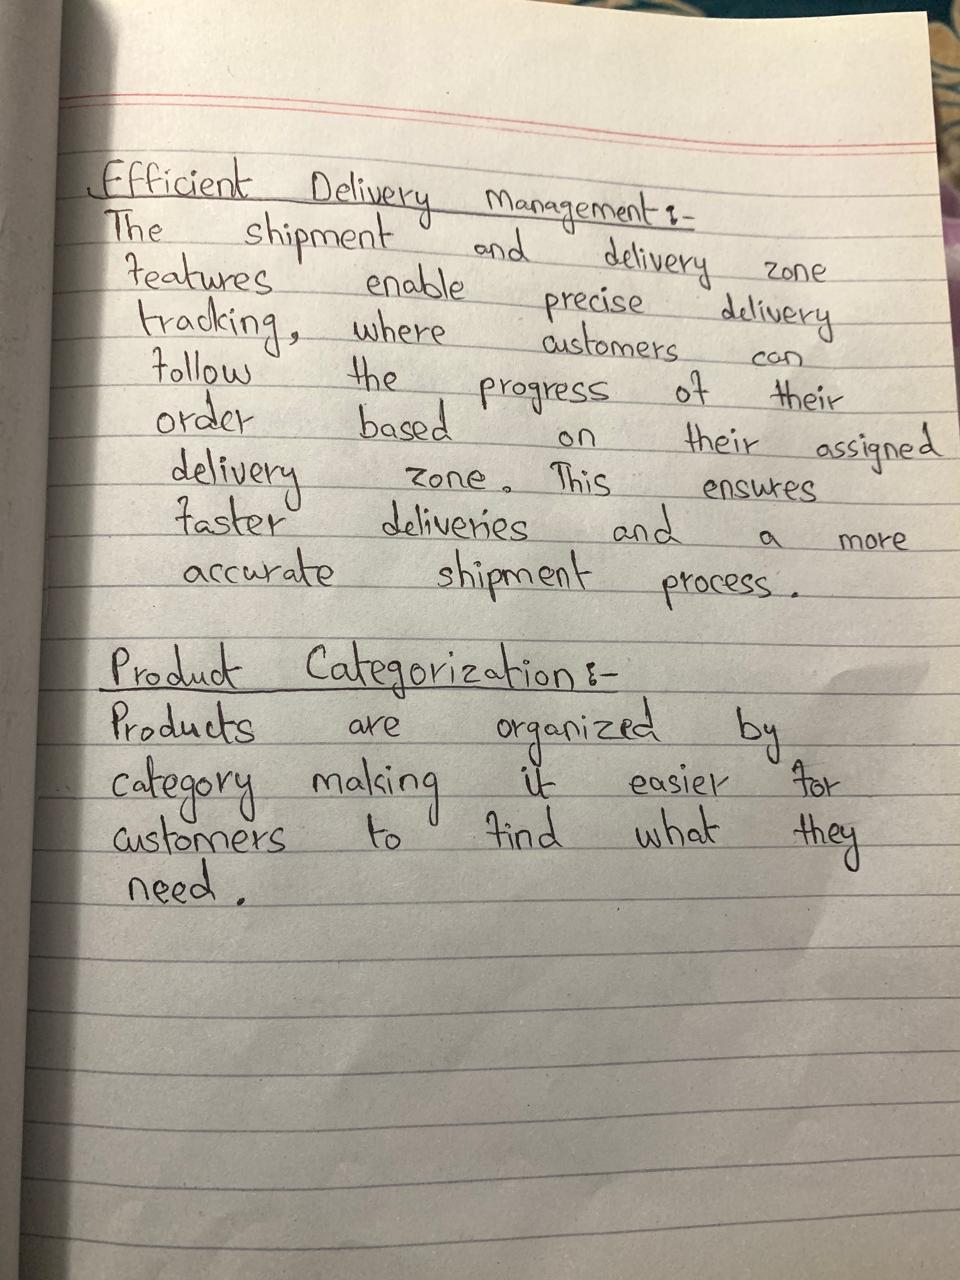 Efficient Delivery Management:-
The shipment and delivery zone
features enable precise delivery
tracking, where customers can
follow the progress of their
order based on their assigned
delivery zone. This ensures
faster deliveries and a more
accurate shipment process.
Product Categorization:-
Products are organized by
category making it easier for
customers to find what they
need.